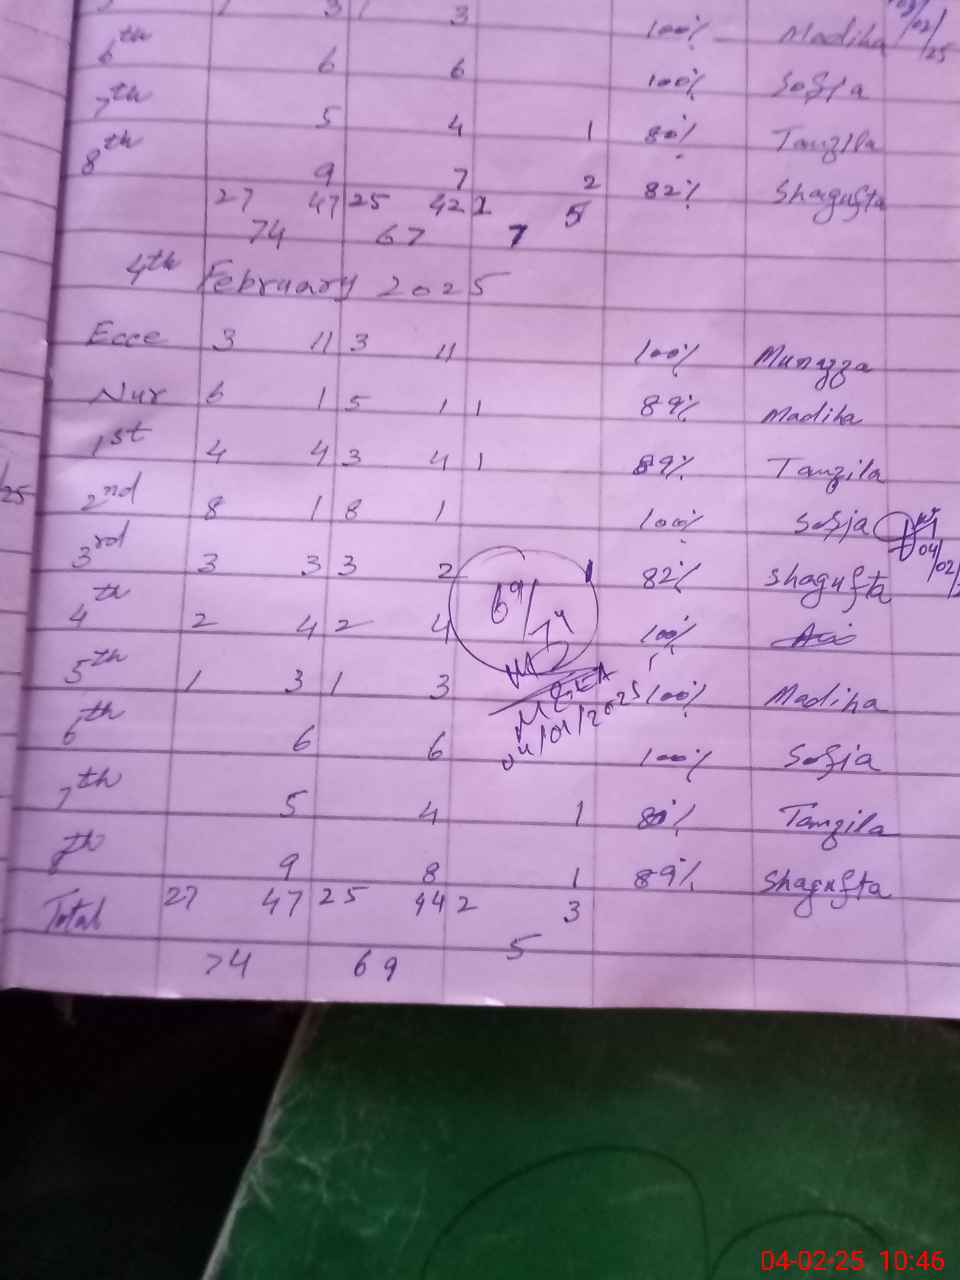 3 3 100% Madiha 03/02/25
6th 6 6 100% Sofia
7th 5 4 1 80% Tanzila
8th 9 7 2 82% Shagufta
27 47 25 42 2 5
74 67 7
4th February 2025
Ecce 3 11 3 11 100% Munazza
Nur 6 1 5 1 1 89% Madiha
1st 4 4 3 4 1 89% Tanzila
2nd 8 1 8 1 100% Sofia
04/02/
3rd 3 3 3 2 1 82% Shagufta
69/74
4th 2 4 2 4 100%
5th 1 3 1 3 100% Madiha
MEEA
04/01/2025
6th 6 6 100% Sofia
7th 5 4 1 80% Tanzila
8th 9 8 1 89% Shagufta
Total 27 47 25 44 2 3
74 69 5
04-02-25 10:46